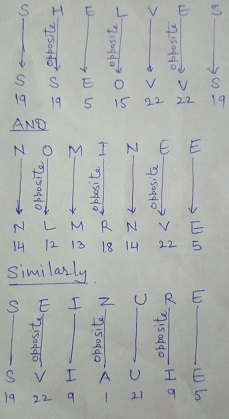 S H E L V E S
opposite opposite opposite
S S E O V V S
19 19 5 15 22 22 19
AND
N O M I N E E
opposite opposite opposite
N L M R N V E
14 12 13 18 14 22 5
Similarly
S E I Z U R E
opposite opposite opposite
S V I A U I E
19 22 9 1 21 9 5